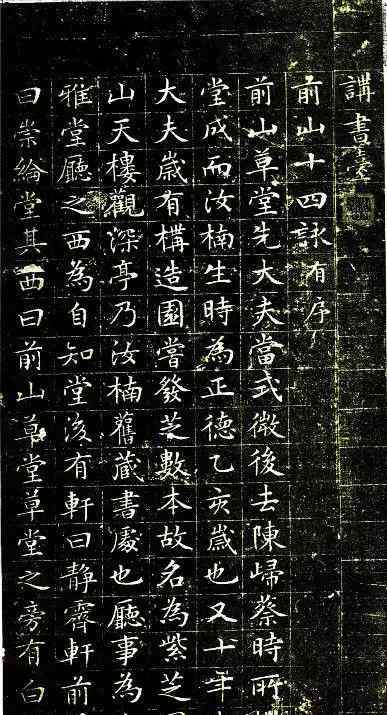 講書臺
前山十四詠有序
前山草堂先大夫當式微後去陳歸蔡時所
堂成而汝楠生時為正德乙亥歲也又十年
大夫歲有構造園嘗發芝數本故名為紫芝
山天樓觀深亭乃汝楠舊藏書處也廳事為
雅堂廳之西為自知堂後有軒曰静齋軒前
曰崇綸堂其西曰前山草堂草堂之旁有白